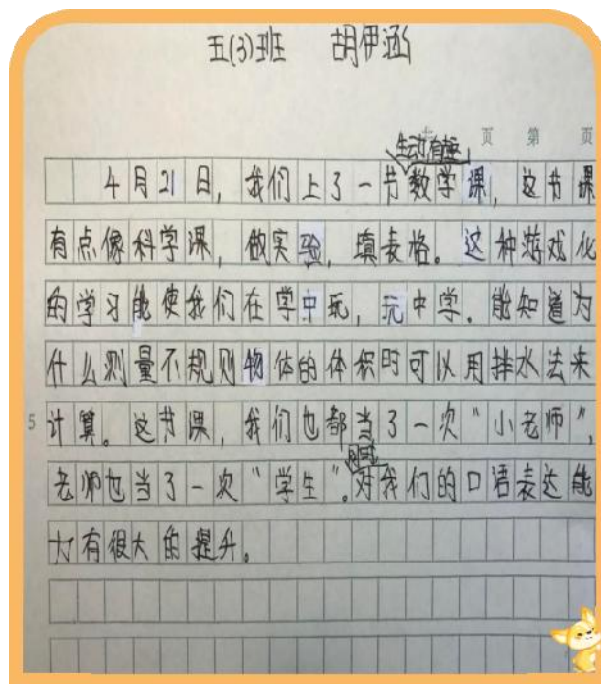 五(3)班 胡伊涵
页 第 页
生动有趣
4月21日，我们上了一节数学课，这节课
有点像科学课，做实验，填表格。这种游戏化
的学习能使我们在学中玩，玩中学。能知道为
什么测量不规则物体的体积时可以用排水法来
5 计算。这节课，我们也都当了一次“小老师”，
同时
老师也当了一次“学生”。对我们的口语表达能
力有很大的提升。